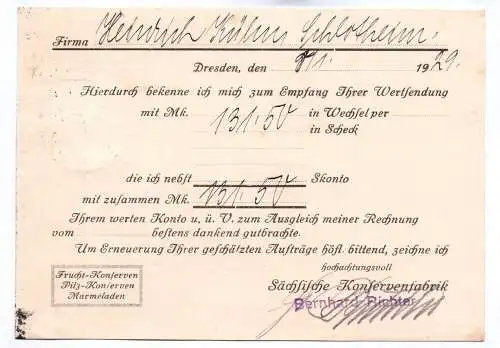 Firma Heinrich Kühn Schlotheim.
Dresden, den 8/1. 1929.
Hierdurch bekenne ich mich zum Empfang Ihrer Wertsendung
mit Mk. 131.50 in Wechsel per
in Scheck
die ich nebst Skonto
mit zusammen Mk. 131.50
Ihrem werten Konto u. ü. V. zum Ausgleich meiner Rechnung
vom bestens dankend gutbrachte.
Um Erneuerung Ihrer geschätzten Aufträge höfl. bittend, zeichne ich
hochachtungsvoll
Sächsische Konservenfabrik
Bernhard Richter
Frucht-Konserven
Pilz-Konserven
Marmeladen